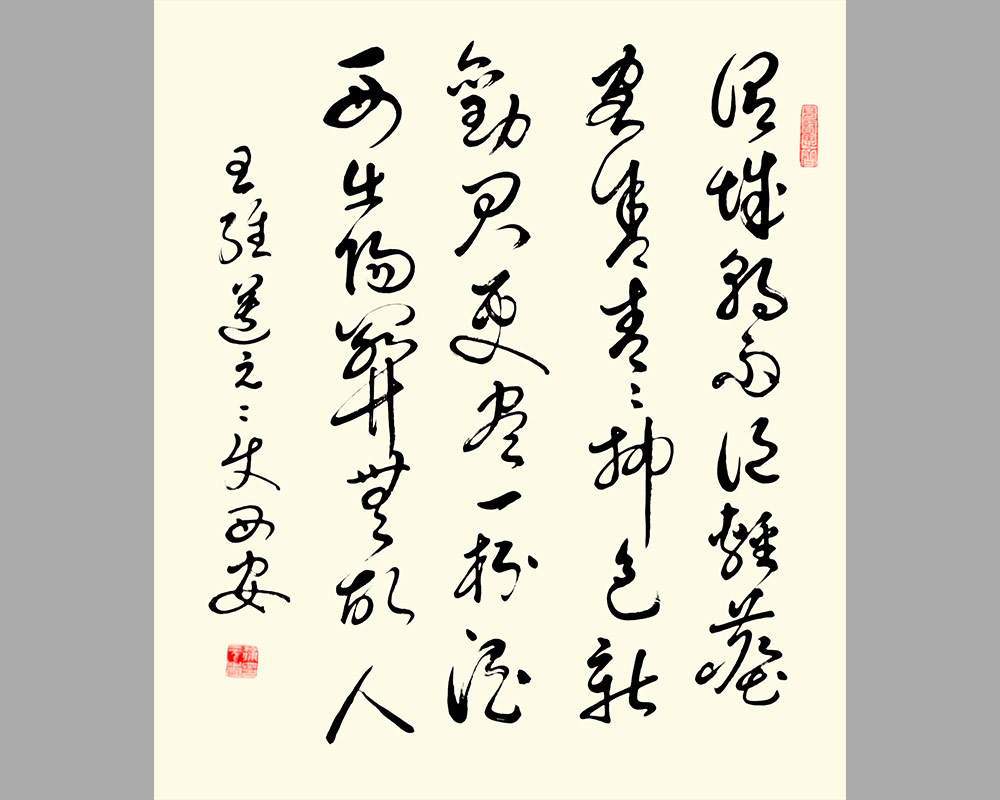 渭城朝雨浥輕塵
客舍青々柳色新
勸君更盡一杯酒
西出陽關無故人
王維送元二使西安